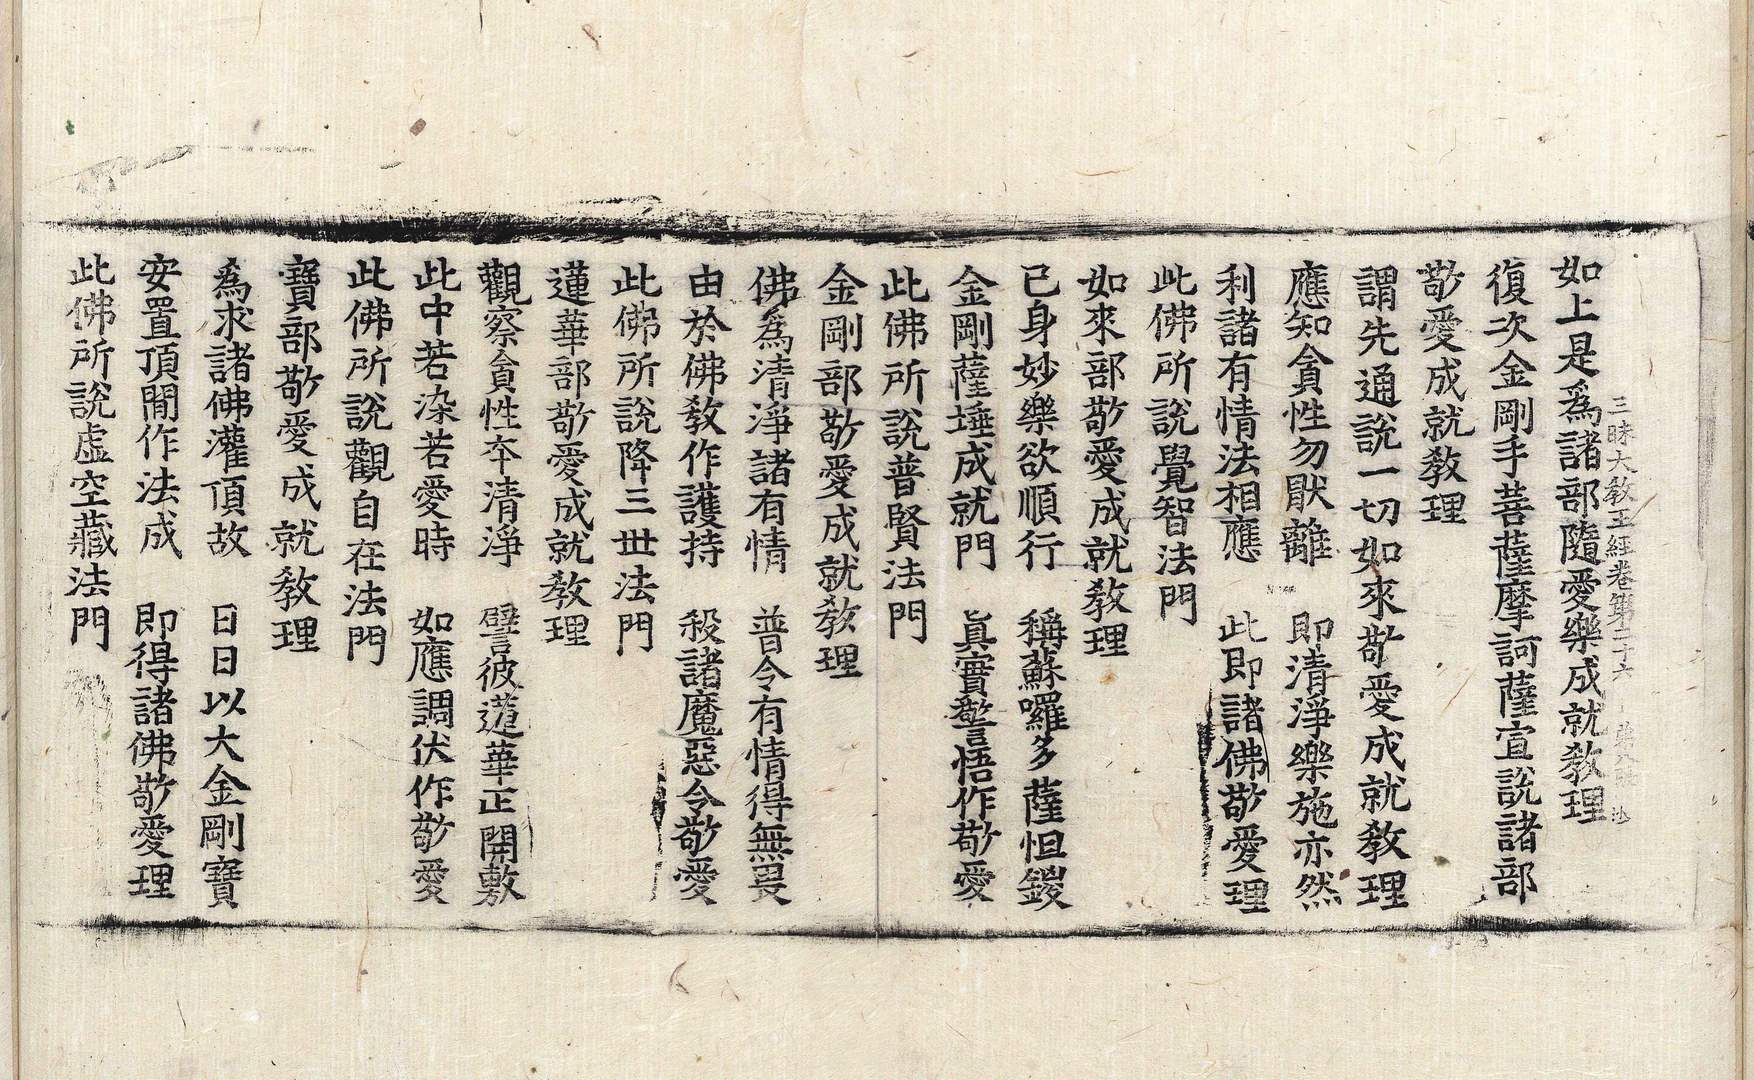 三昧大教王經卷第二十六 第八張 沙
如上是爲諸部隨愛樂成就教理
復次金剛手菩薩摩訶薩宣說諸部
敬愛成就教理
謂先通說一切如來敬愛成就教理
應知貪性勿猒離 即清淨樂施亦然
利諸有情法相應 此即諸佛敬愛理
此佛所說覺智法門
如來部敬愛成就教理
已身妙樂欲順行 稱蘇囉多薩怛鑁
金剛薩埵成就門 眞實警悟作敬愛
此佛所說普賢法門
金剛部敬愛成就教理
佛爲清淨諸有情 普令有情得無畏
由於佛教作護持 殺諸魔惡令敬愛
此佛所說降三世法門
蓮華部敬愛成就教理
觀察貪性本清淨 譬彼蓮華正開敷
此中若染若愛時 如應調伏作敬愛
此佛所說觀自在法門
寶部敬愛成就教理
爲求諸佛灌頂故 日日以大金剛寶
安置頂間作法成 即得諸佛敬愛理
此佛所說虛空藏法門